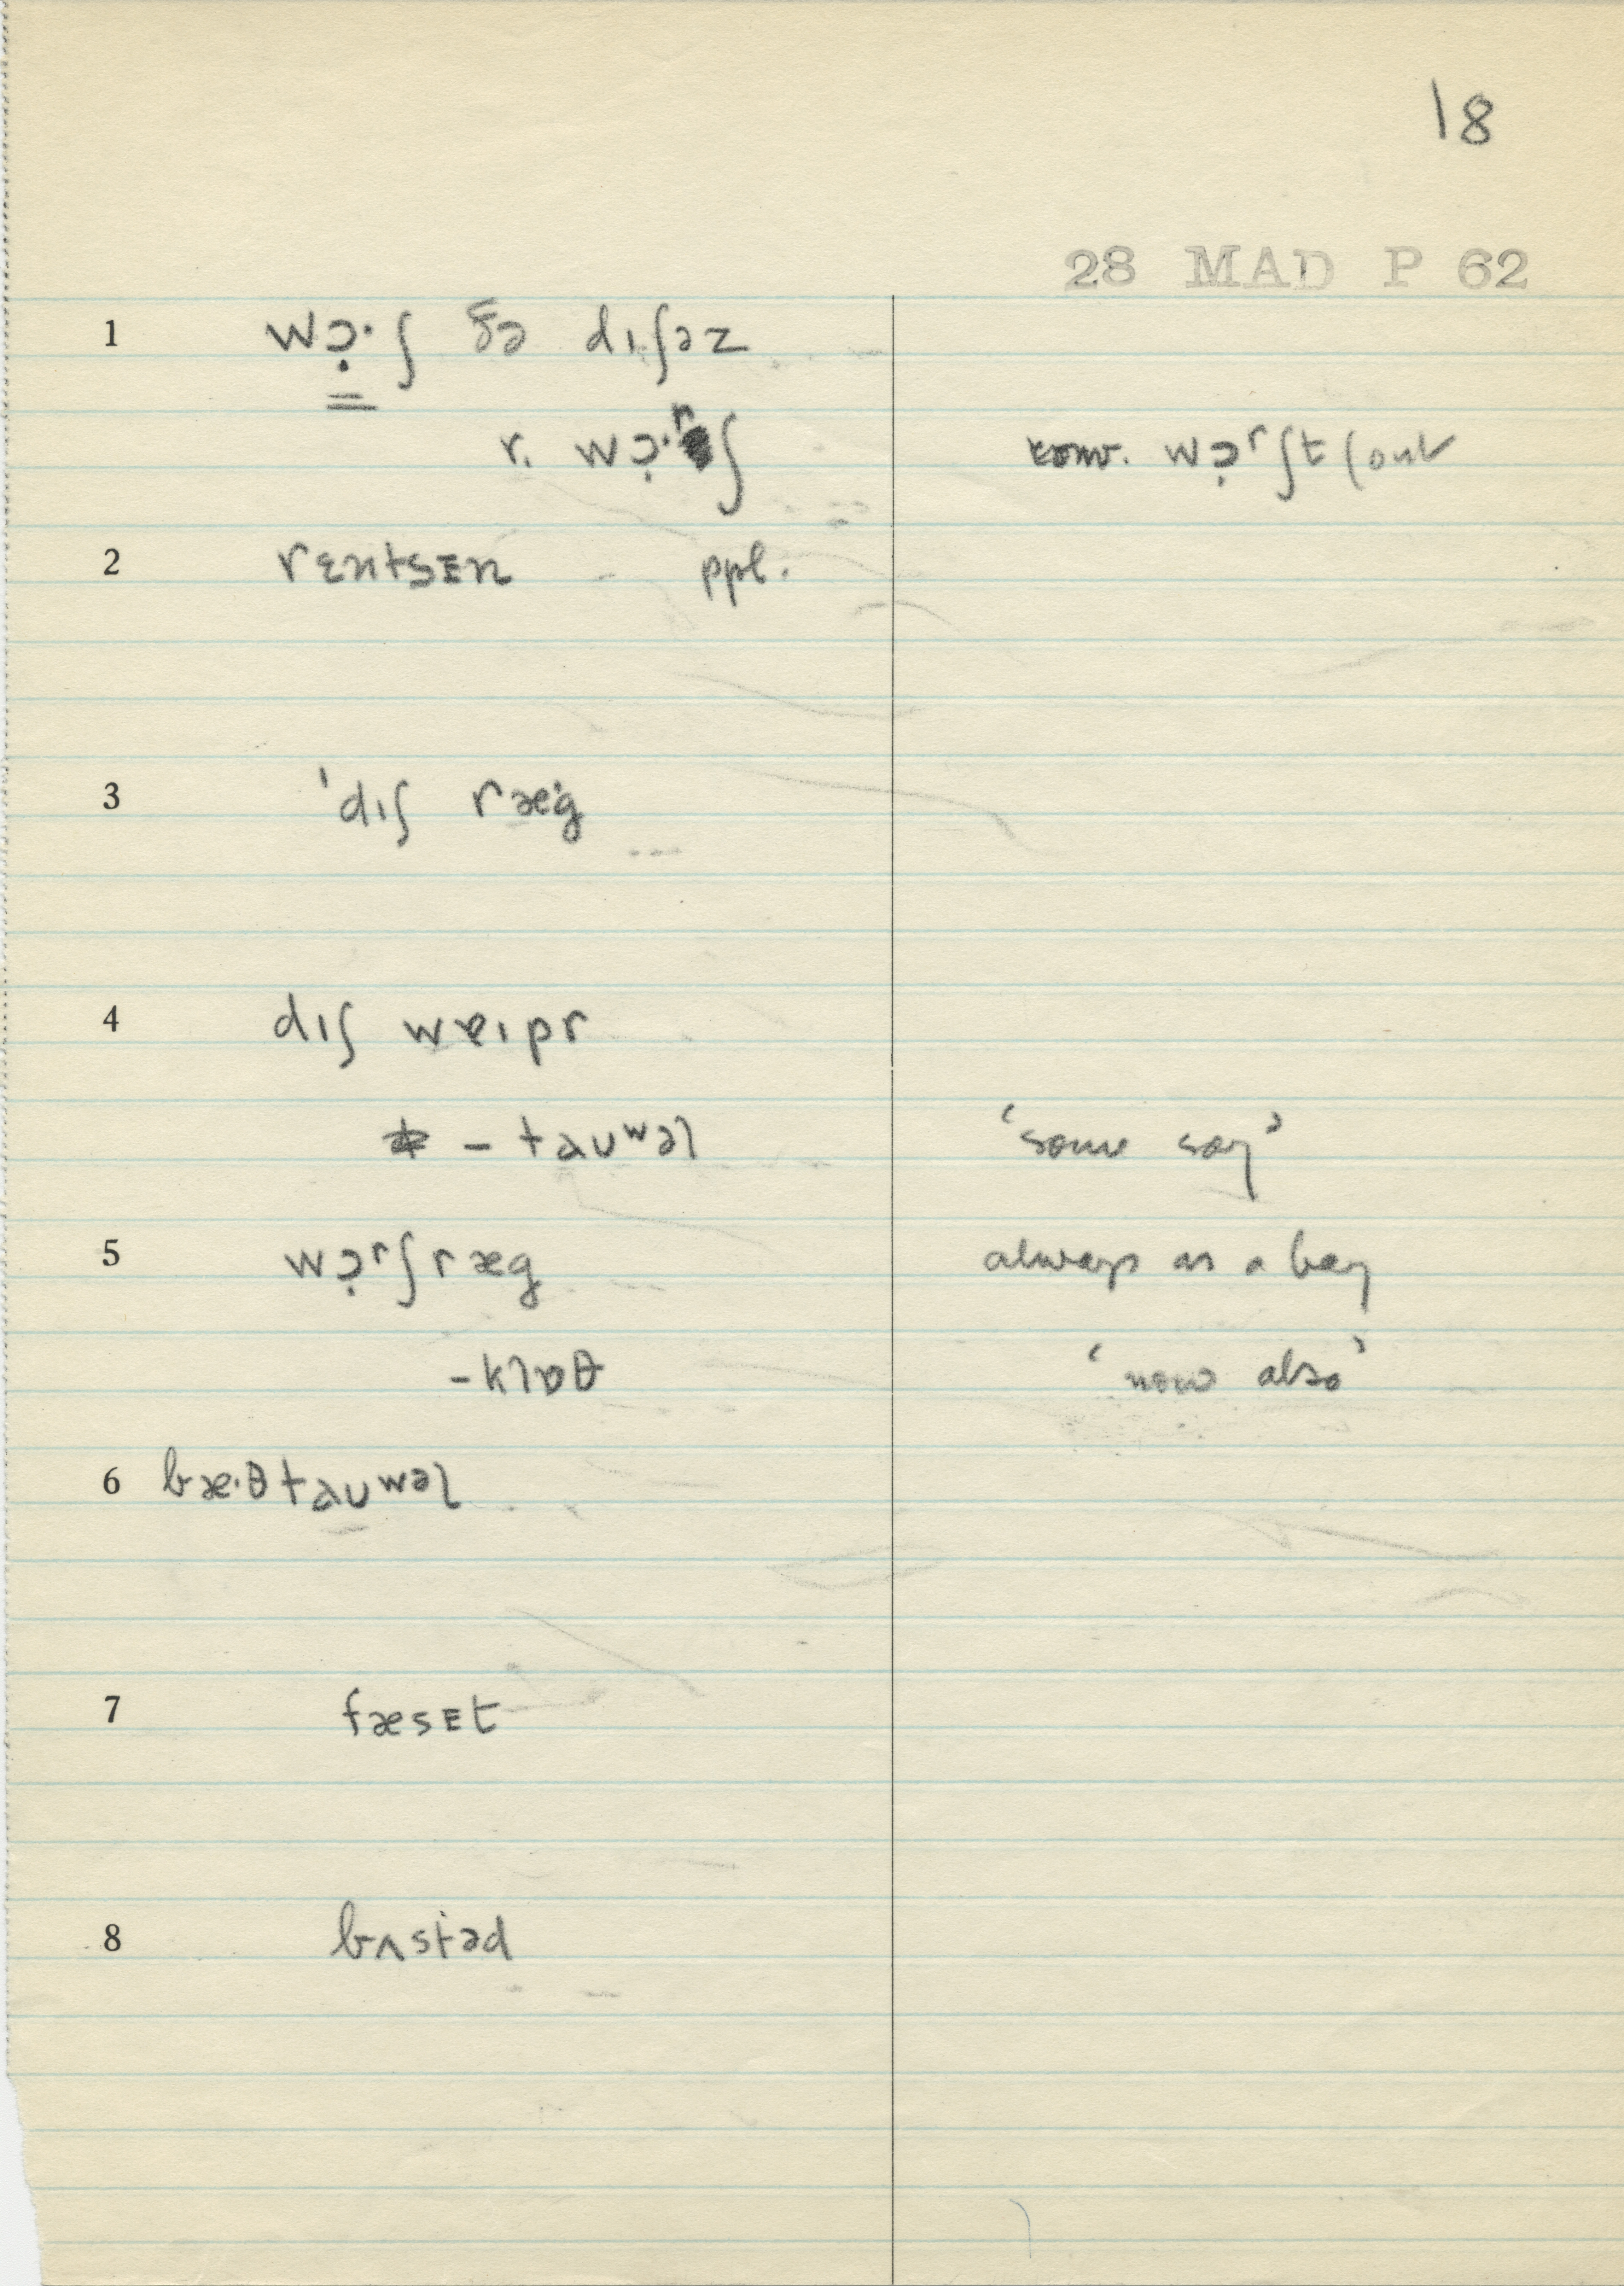 18
28 MAD P 62
1 wɔ̣·ʃ ðə dıʃəz
r. wɔ̣·ʳʃ wɔ̣ʳʃt (out
2 rɛntsᴇn - ppl.
3 'dıʃ ræ·g
4 dıʃ wɐıpr
– tɑuʷəl 'some say'
5 wɔ̣ʳʃræg always as a boy
-klɒθ 'now also'
6 bæ·θtɑuʷəl
7 fæsᴇt
8 bʌstəd